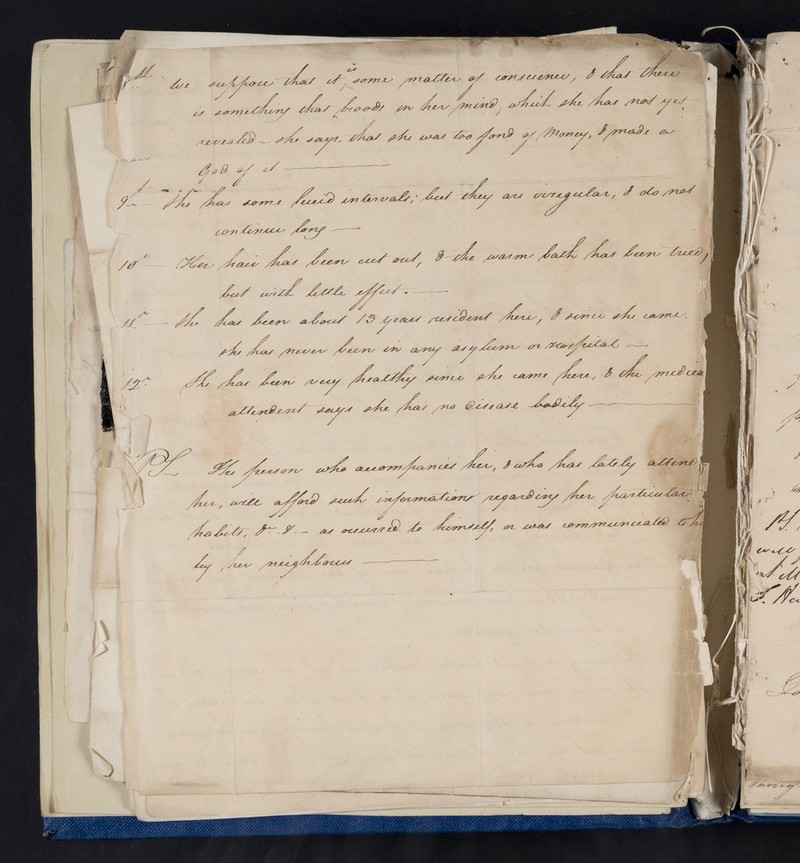 We suppose that it is some matter of conscience, & that there
is something that broods in her mind, which she has not yet
revealed – she says, that she was too fond of Money, & made a
God of it —
9th — She has some lucid intervals; but they are irregular, & do not
continue long —
10th — Her hair has been cut out, & the warm bath has been tried,
but with little effect. —
11th — She has been about 13 years resident here, & since she came.
she has never been in any asylum or Hospital —
12th. She has been very healthy since she came here, & the medica
attendent says she has no Disease bodily —
PS The person who accompanies her, & who has lately attend
her, will afford such informations regarding her particular
habits, &c. &. – as occurred to himself, or was communicated to h
by her neighbours —